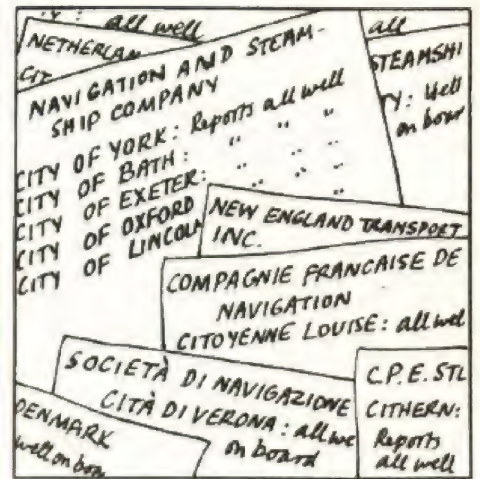 : all well
NETHERLAN
CIT
all
STEAMSHI
TY: Well
on boar
NAVIGATION AND STEAM-
SHIP COMPANY
CITY OF YORK: Reports all well
CITY OF BATH: " " "
CITY OF EXETER: " " "
CITY OF OXFORD
CITY OF LINCOLN
NEW ENGLAND TRANSPORT
INC.
COMPAGNIE FRANCAISE DE
NAVIGATION
CITOYENNE LOUISE: all well
SOCIETÀ DI NAVIGAZIONE
CITÀ DI VERONA: all we
on board
C.P.E. STL
CITHERN:
Reports
all well
DENMARK
well on boa